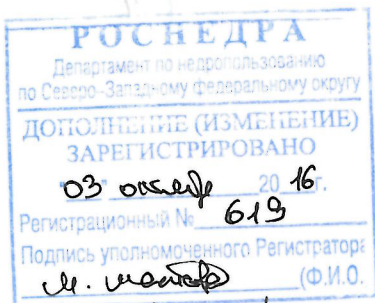 РОСНЕДРА
Департамент по недропользованию
по Северо-Западному федеральному округу
ДОПОЛНЕНИЕ (ИЗМЕНЕНИЕ)
ЗАРЕГИСТРИРОВАНО
"03" октября 2016г.
Регистрационный № 619
Подпись уполномоченного Регистратора
(Ф.И.О.